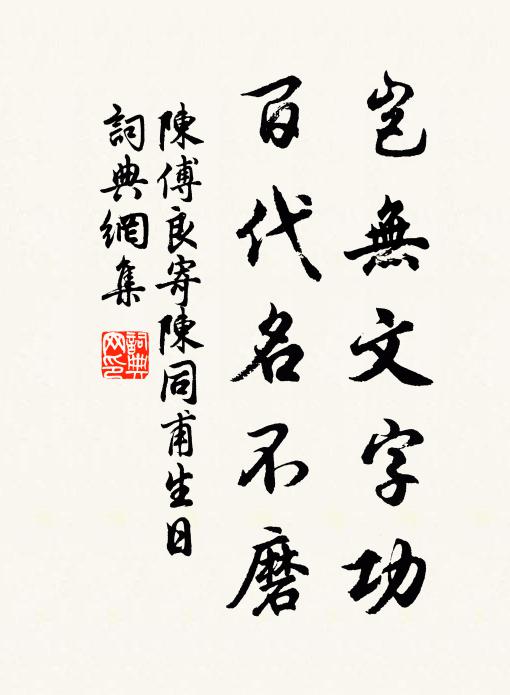 豈無文字功
百代名不磨
陳傅良寄陳同甫生日
詞典網集
詞典
網印